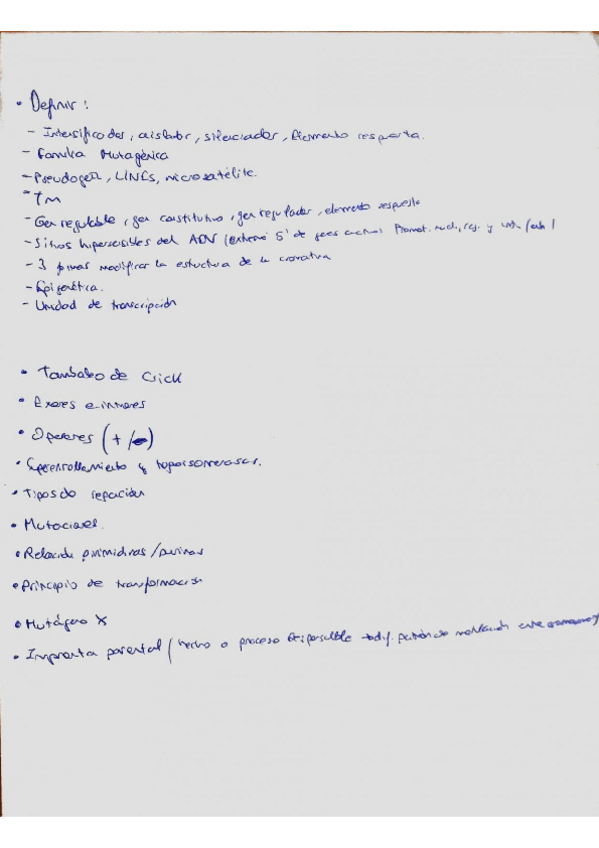 • Definir:
- Intensificador, aislador, silenciador, Elemento respuesta.
- Familia Mutagénica
- Pseudogen, LINEs, microsatélite.
- Tm
- Gen regulable, gen constitutivo, gen regulador, elemento respuesta
- Sitios hipersensibles del ADN (extremo 5' de genes activos Promot. nucl., reg. y
- 3 formas modificar la estructura de la cromatina
- Epigenética.
- Unidad de transcripción
• Tambaleo de Crick
• Exones e intrones
• Operones (+/-)
• Superenrollamiento y topoisomerasas.
• Tipos de repación
• Mutaciones.
• Relación pirimidinas/purinas
• Principio de transformación
• Mutágeno X
• Impronta parental / hecho o proceso responsable modif. patrón de metilación entre